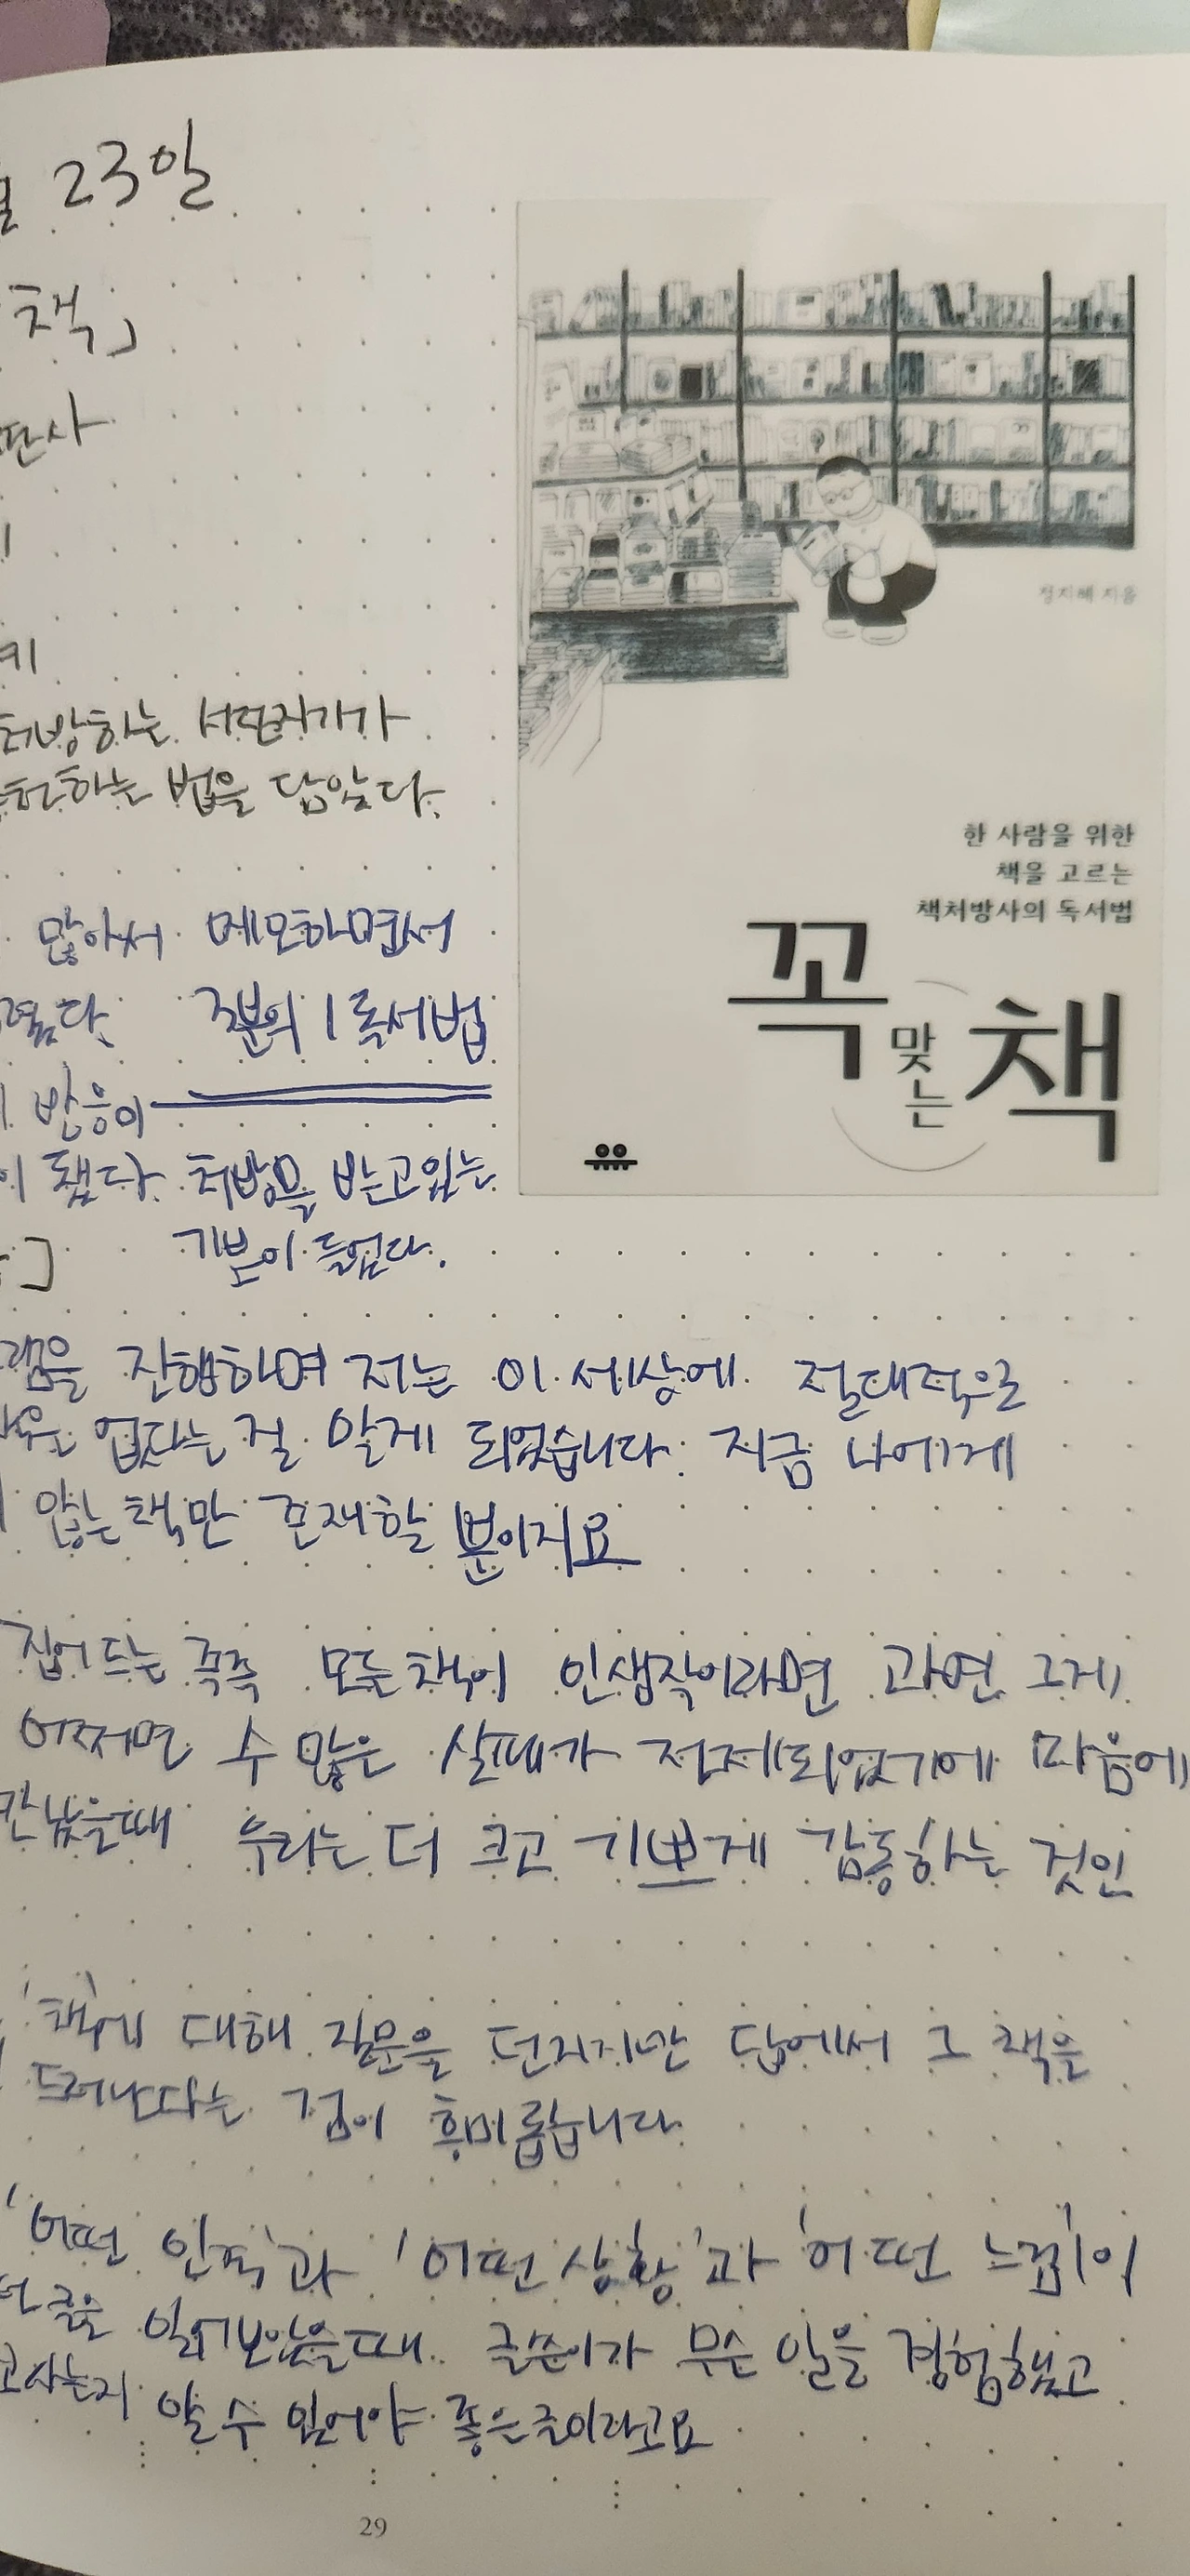 월 23일
책」
판사
기
처방하는 서점자기가
추천하는 법을 담았다.
많아서 메모하면서
3분의 1 독서법
반응이
이 됐다. 처방을 받고있는
기분이 들었다.
램을 진행하며 저는 이 세상에 절대적으로
없다는 걸 알게 되었습니다. 지금 나에게
않는 책만 존재할 뿐이지요
집어 드는 족족 모든 책이 인생작이라면 과연 그게
어쩌면 수 많은 실패가 전제되었기에 마음에
만났을때 우리는 더 크고 기쁘게 감동하는 것인
'책'에 대해 질문을 던지지만 답에서 그 책을
드러난다는 점이 흥미롭습니다.
'어떤 인물'과 '어떤 상황'과 '어떤 느낌'이
글을 읽어보았을때. 글쓴이가 무슨 일을 경험했고
사는지 알 수 있어야 좋은글이라고요
29
정지혜 지음
한 사람을 위한
책을 고르는
책처방사의 독서법
꼭 맞는 책